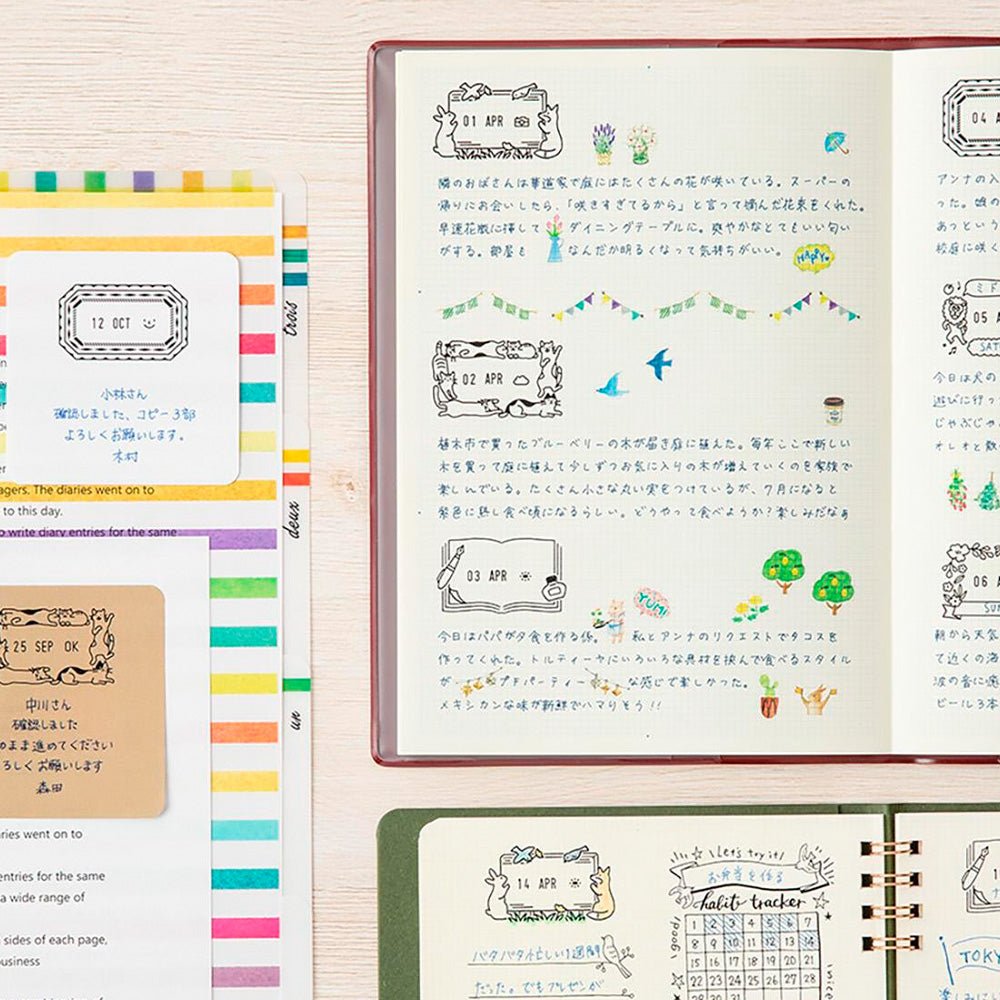 01 APR
隣のおばさんは華道家で庭にはたくさんの花が咲いている。スーパーの
帰りにお会いしたら、「咲きすぎてるから」と言って摘んだ花束をくれた。
早速花瓶に挿して ダイニングテーブルに。爽やかなとてもいい匂い
がする。部屋も なんだか明るくなって気持ちがいい。
HAPPY
02 APR
植木市で買ったブルーベリーの木が届き庭に植えた。毎年ここで新しい
木を買って庭に植えて少しずつお気に入りの木が増えていくのを家族で
楽しんでいる。たくさん小さな丸い実をつけているが、7月になると
紫色に熟し食べ頃になるらしい。どうやって食べようか?楽しみだなぁ
03 APR
YUM!
今日はパパが夕食を作る係。 私とアンナのリクエストでタコスを
作ってくれた。トルティーヤにいろいろな具材を挟んで食べるスタイル
が プドパーティー な感じで楽しかった。
メキシカンな味が新鮮でハマりそう!!
04 A
アンナの入
った。娘の
あっという
校庭に咲く
ミド
05 A
SATU
今日は犬の
遊びに行っ
じゃぶじゃ
オレオと散
06 A
SUN
朝から天気
て近くの海
波の音に癒
ビール3本
12 OCT
小林さん
確認しました、コピー3部
よろしくお願いします。
木村
agers. The diaries went on to
to this day.
o write diary entries for the same
25 SEP OK
中川さん
確認しました
のまま進めてください
ろしくお願いします
森田
aries went on to
entries for the same
a wide range of
sides of each page,
business
trois
deux
un
14 APR
バタバタ忙しい1週間
だった。でもプレゼンが
Let's try it!
お弁当を作る
habit tracker
good!
1 2 3 4 5 6 7
8 9 10 11 12 13 14
15 16 17 18 19 20 21
22 23 24 25 26 27 28
nice
TOKY